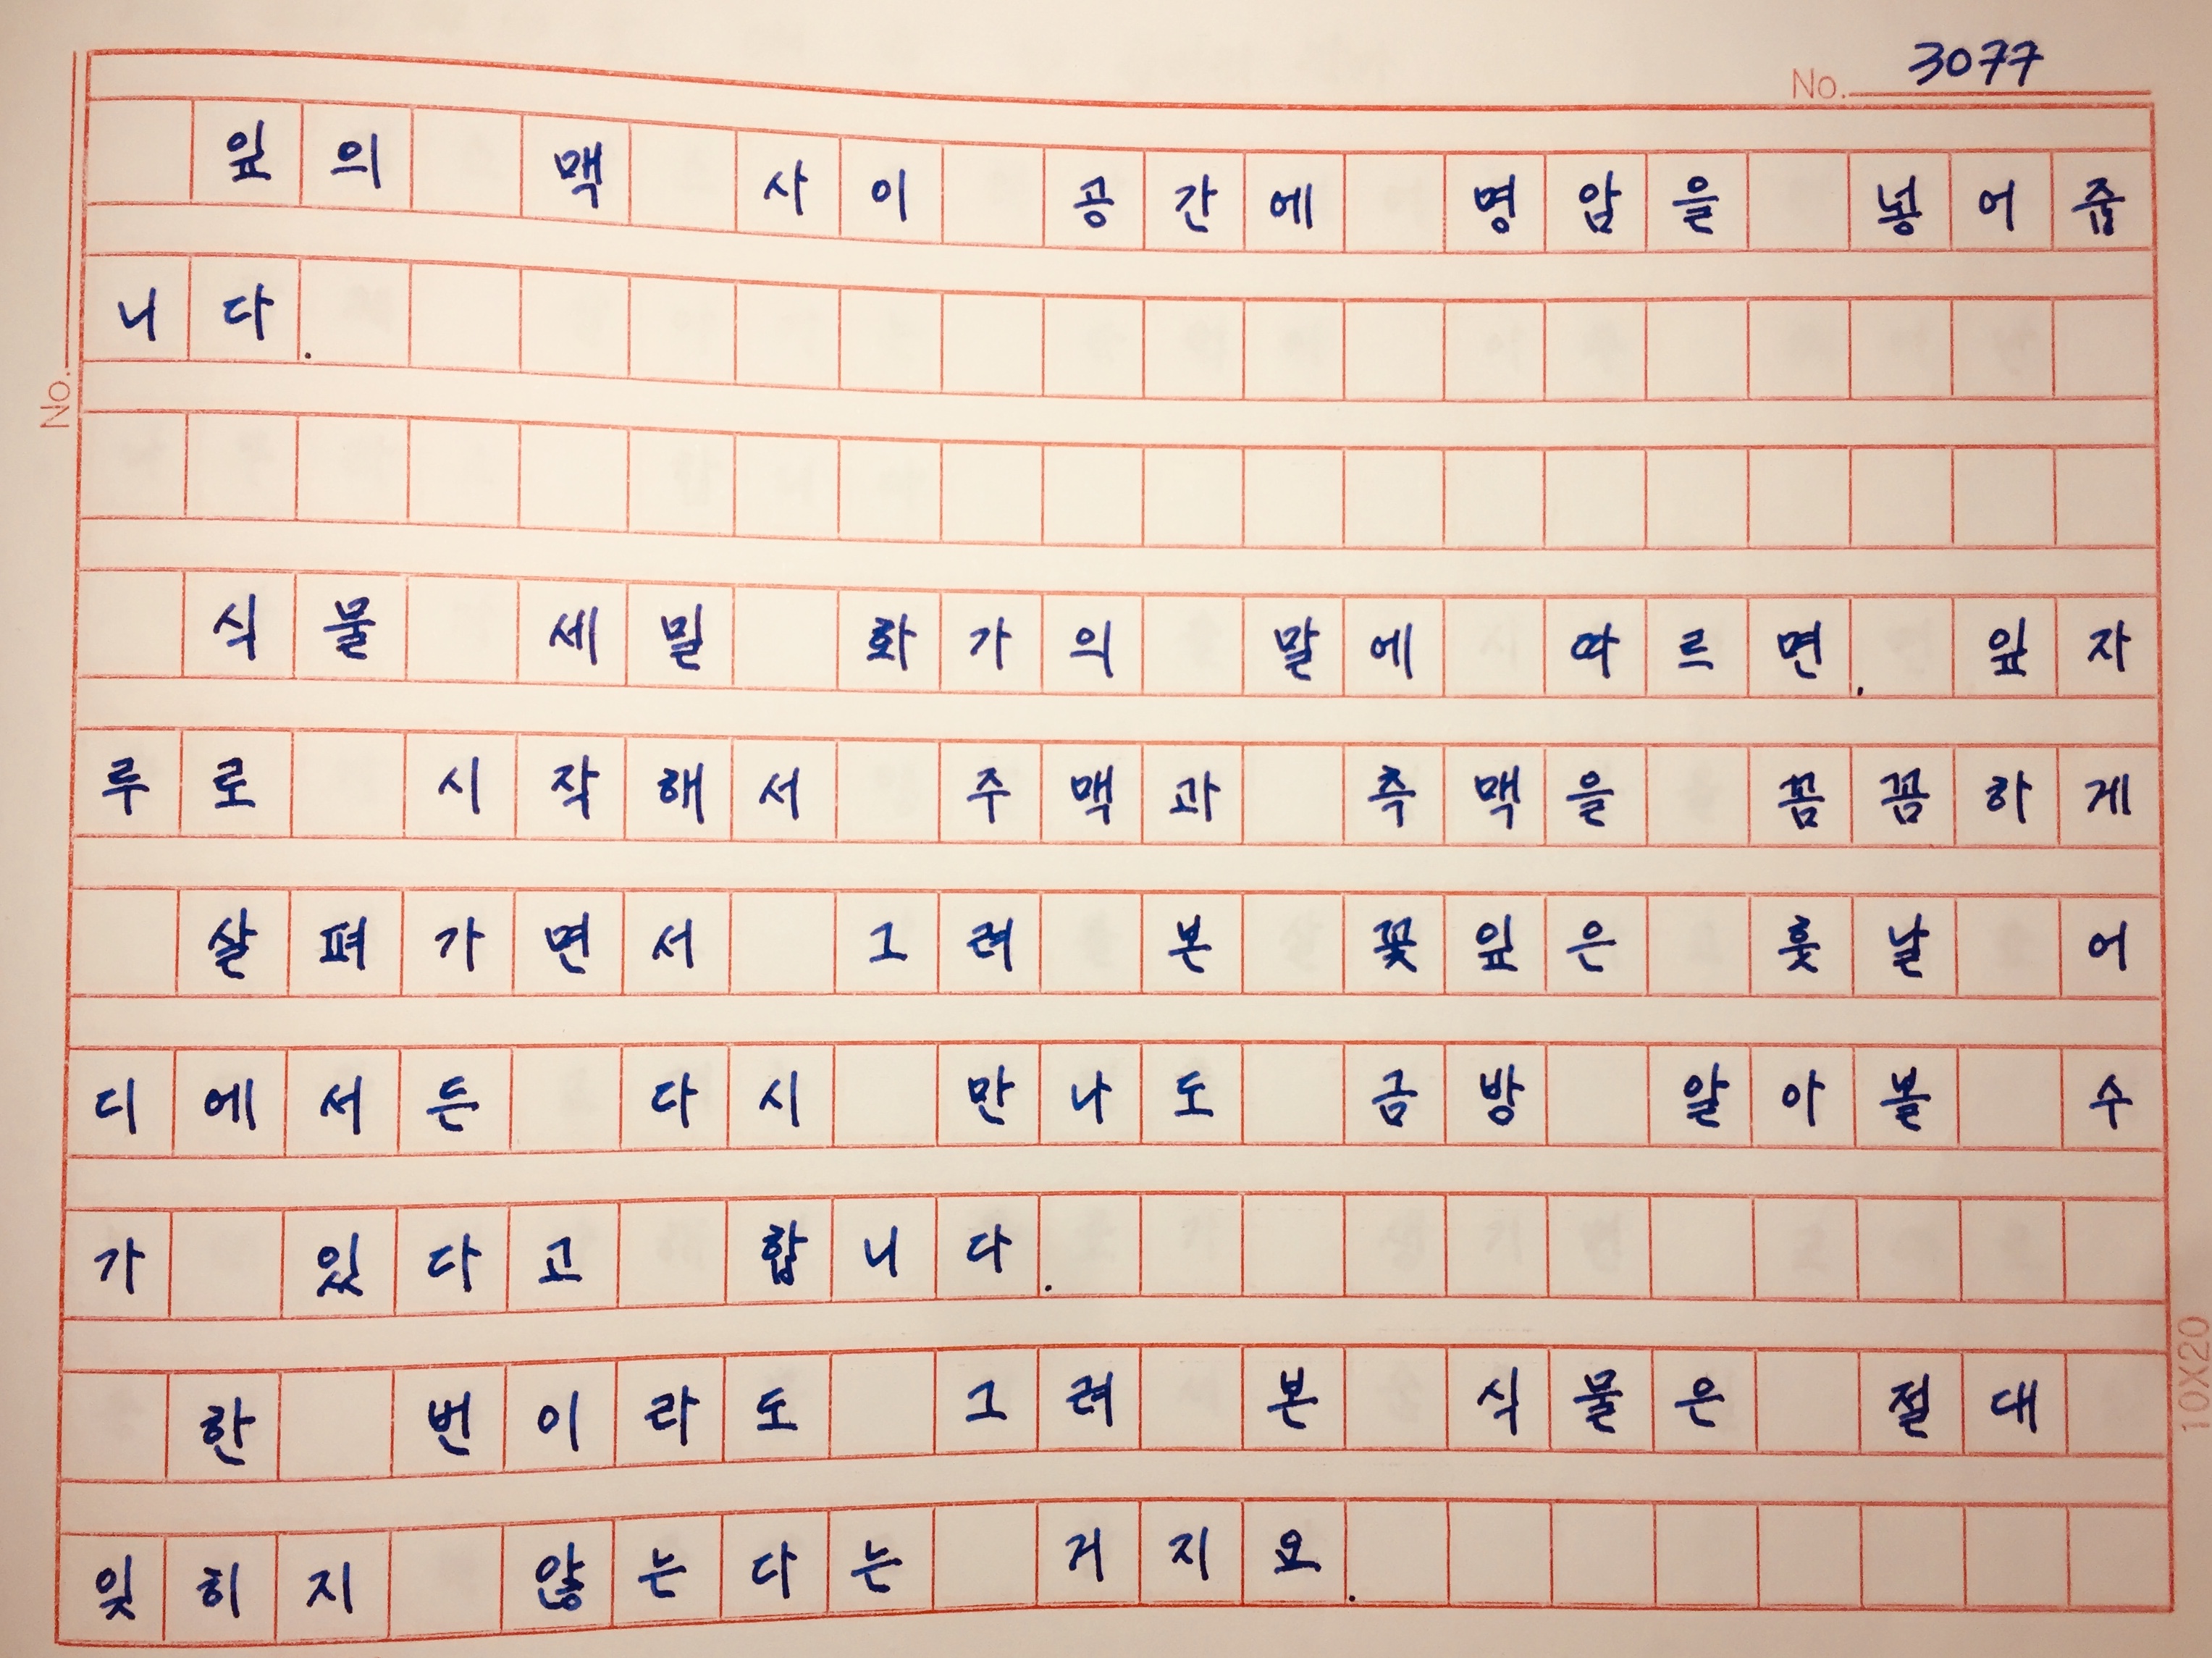 No. 3077
잎의 맥 사이 공간에 명암을 넣어줍
니다.
No.
식물 세밀 화가의 말에 따르면. 잎자
루로 시작해서 주맥과 측맥을 꼼꼼하게
살펴가면서 그려 본 꽃잎은 훗날 어
디에서든 다시 만나도 금방 알아볼 수
가 있다고 합니다.
한 번이라도 그려 본 식물은 절대
잊히지 않는다는 거지요.
10X20